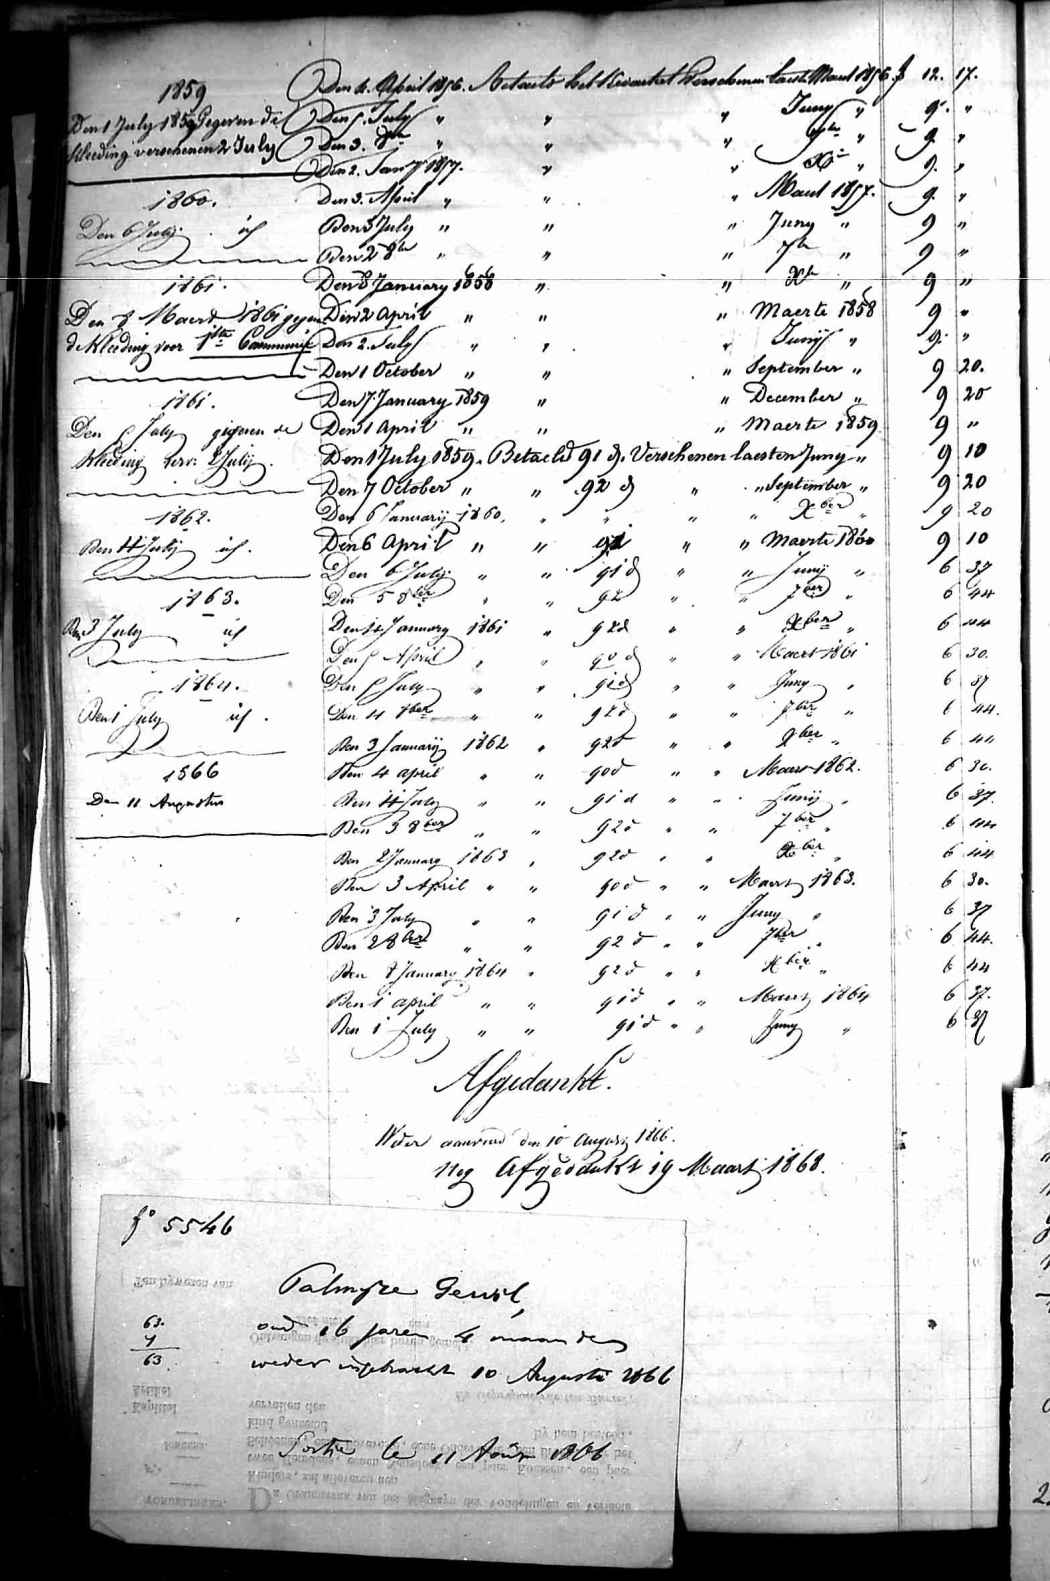 1859
Den 1 July 1859 Gegeven de
Kleeding verschenen 2 July
1860.
Den 6 July. id
1861.
Den 8 Maert 1861 gegeven
de Kleeding voor 1ste Communie
1861.
Den 5 July gegeven de
Kleeding vers. 2 July.
1862.
Den 4 July id.
1863.
Den 3 July id
1864.
Den 1 July id.
1866
Den 11 Augustus
Den 4. April 1856. Betaeld het Kwartael Verschenen laesten Maert 1856. f 12. 17.
Den 5. July " " " Juny " 9. "
Den 3. 8bre " " " 7bre " 9. "
Den 2. Jany 1857. " " Xbre " 9. "
Den 3. April " " " Maert 1857. 9. "
Den 3 July " " " Juny " 9 "
Den 2 8bre " " " 7bre " 9 "
Den 8 January 1858 " " Xbre " 9 "
Den 2 April " " " Maerte 1858 9 "
Den 2. July " " " Junij " 9. "
Den 1 October " " " September " 9 20.
Den 7 January 1859 " " December " 9 20
Den 1 April " " " Maerte 1859 9 "
Den 1 July 1859. Betaeld 91 d. Verschenen laesten Juny " 9 10
Den 7 October " " 92 d " " September " 9 20
Den 6 Januarij 1860. " " " " Xber " 9 20
Den 6 April " " 91 " " Maerte 1860 9 10
Den 6 July " " 91 d " " Junij " 6 37
Den 5 8ber " " 92 " " 7ber " 6 44
Den 4 January 1861 " 92d " " Xber " 6 44
Den 5 April " " 90 d " " Maert 1861 6 30.
Den 5 July " " 91d " " Juny " 6 37
Den 4 8ber " " 92d " " 7ber " 6 44.
Den 3 Januarij 1862 " 92d " " Xber " 6 44
Den 4 april " " 90d " " Maert 1862. 6 30.
Den 4 July " " 91 d " " Junij " 6 37.
Den 3 8ber " " 92d " " 7ber " 6 44
Den 2 January 1863 " 92d " " Xber " 6 44
Den 3 April " " 90d " " Maert 1863. 6 30.
Den 3 July " " 91 d " " Juny " 6 37
Den 2 8ber " " 92 d " " 7ber " 6 44.
Den 8 January 1864 " 92d " " Xber " 6 44
Den 1 april " " 91d " " Maert 1864 6 37.
Den 1 July " " 91 d " " Juny " 6 37
Afgedankt.
Weder aanveerd den 10 Augusty 1866.
Nog Afgedankt 19 Maart 1868.
f° 5546
Palmyre Gewil,
63.
oud 16 jaren 4 maanden
63.
weder ingebracht 10 Augusti 1866
Sortie le 11 Août 1866